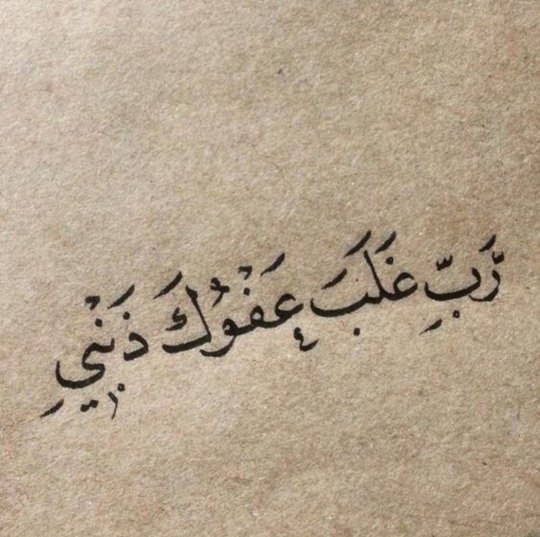 رَبِّ غَلَبَ عَفْوُكَ ذَنْبِي